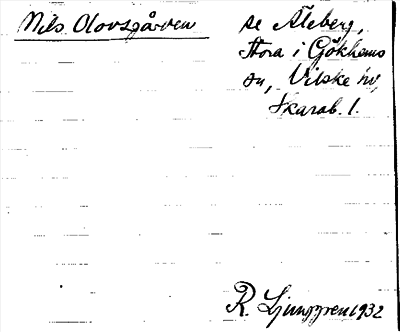 Nils Olovsgården
se Åleberg,
Stora i Gökhems
sn, Vilske hd,
Skarab. l.
R. Ljunggren 1932